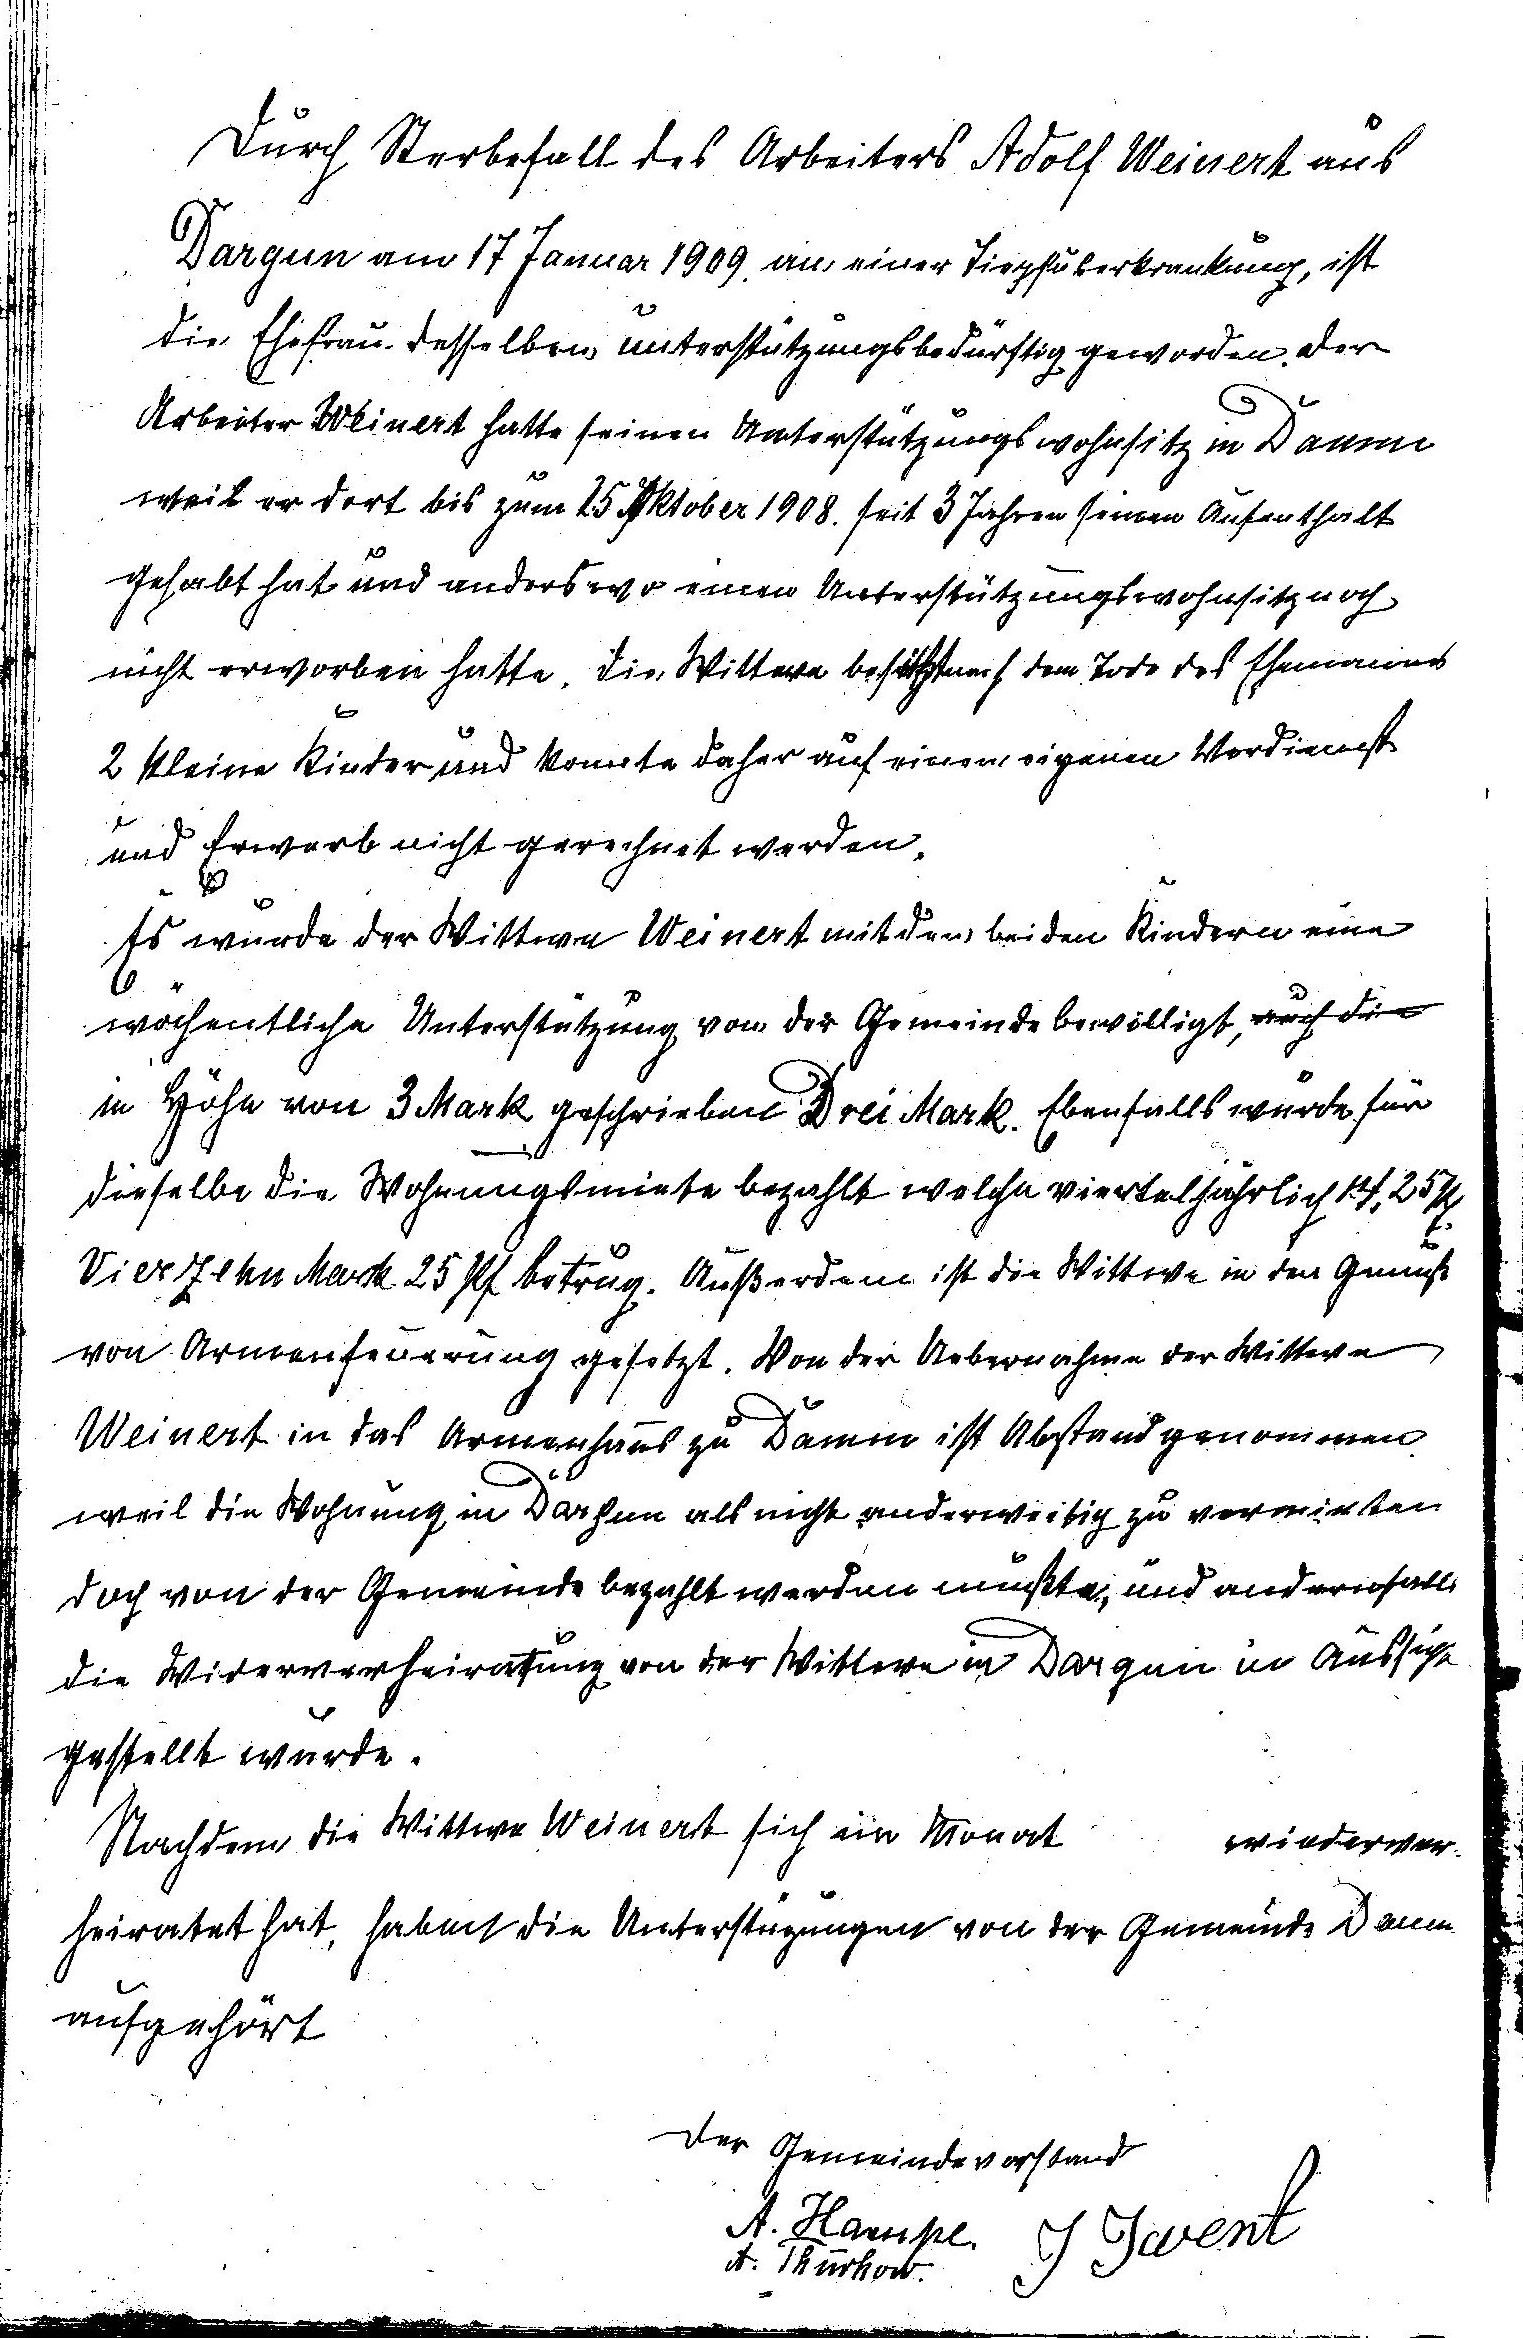 Durch Sterbefall des Arbeiters Adolf Weinert aus
Dargun am 17 Januar 1909. an einer erkrankung, ist
die Ehefrau desselben unterstützungsbedürftig geworden. Der
Arbeiter Weinert hatte seinen Unterstützungswohnsitz in Damm
weil er dort bis zum 25 Oktober 1908. seit 3 Jahren seinen Aufenthalt
gehabt hat und anderswo einen Unterstützungswohnsitz noch
nicht erworben hatte. Die Wittwe nach dem Tode des Ehemannes
2 kleine Kinder und konnte daher auf einen eigenen Verdienst
und Erwerb nicht gerechnet werden.
Es wurde der Wittwe Weinert mit den beiden Kindern eine
wöchentliche Unterstützung von der Gemeinde bewilligt, auch die
in Höhe von 3 Mark geschrieben Drei Mark. Ebenfalls wurde für
dieselbe die Wohnungsmiete bezahlt welche vierteljährlich 14,25 M
Vierzehn Mark 25 Pf betrug. Außerdem ist die Wittwe in den Genuß
von Armenfeuerung gesetzt. Von der Uebernahme der Wittwe
Weinert in das Armenhaus zu Damm ist Abstand genommen
weil die Wohnung in Dargun als nicht anderweitig zu vermieten
doch von der Gemeinde bezahlt werden mußte, und andernfalls
die Widerverheiratung von der Wittwe in Dargun in Aussicht
gestellt wurde.
Nachdem die Wittwe Weinert sich im Monat wiederver-
heiratet hat, haben die Unterstüzungen von der Gemeinde Damm
aufgehört
Der Gemeindevorstand
A. Hampe. J Jwent
A. Thurkow.